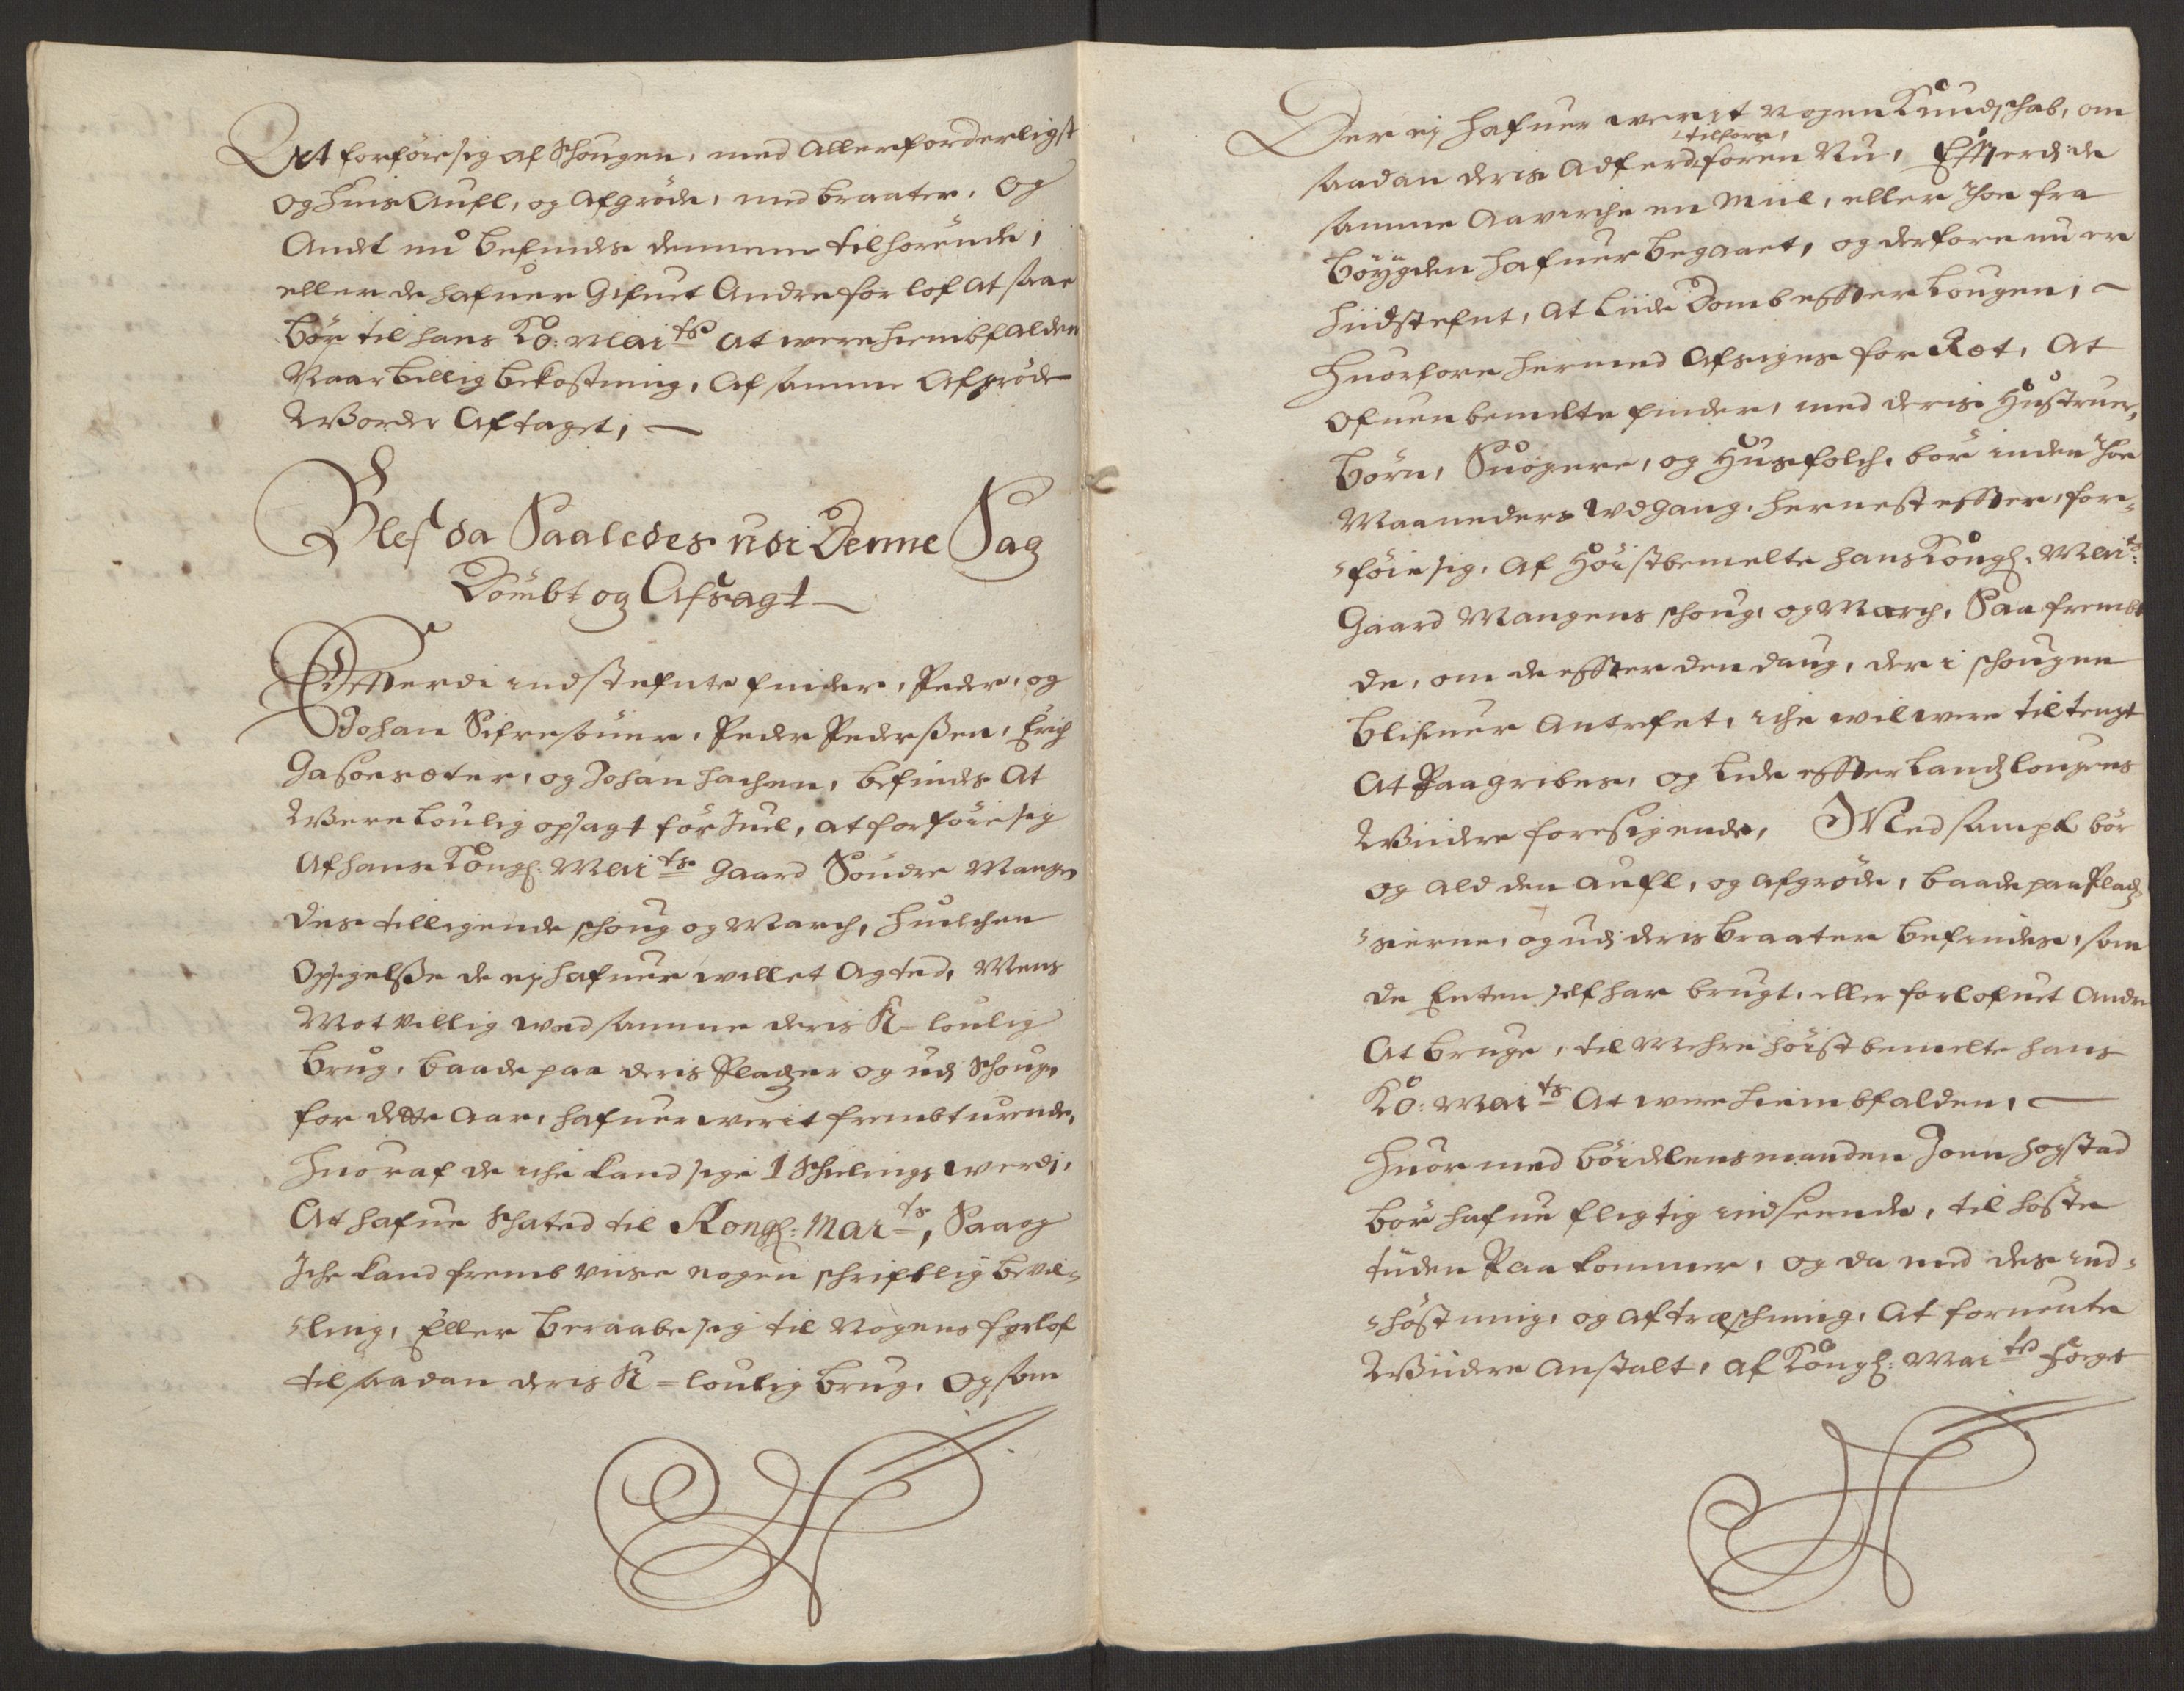 Att forføie sig af Schougen, med allerforderligst
og huis Aufl, og Afgröde, med braater, og
Andt nu befindes dennem tilhorende,
eller de hafuer Gifuet Andre forlof at saae
bör til hans Ko: Mai.ts at were hiembfalden
Naar billig bekostning, af samme Afgröde
Worder Aftaget, —
Blef da Saaledes udi Denne Sag
Dömbt og Afsagt —
Efftterdi indstefnte finder, Peder, og
Johan Sifresöner, Peder Pederssen, Erich
Gaasesæter, og Johan hachen, befindes At
Were loulig opsagt för Juel, at forföie sig
Af hans Kongl: Mai.ts Gaard Söndre Mangs
dies tilligende schoug og March, huilchen
Opsigelsse de ej hafuer willet Agted, Mens
Motvillig wed samme deris U-loulig
brug, baade paa deris Pladzer og udj Schoug
for dette Aar, hafuer werit frembturende,
huoraf de iche kand sige 1 Schilings werdj,
At hafue Schated til Kongl: Mai.ts, Saa og
Iche kand fremb viise nogen schrifftlig bevil-
-ling, Eller beraabe sig til Nogens forlof
til saadan deris U-loulig brug, Og som
Der ej hafuer werit nogen Kundschab, om
tilforn,
saadan deris Adferd foren Nu, Effterdj de
samme Aavirche en Miil, eller Thoe fra
böygden hafuer begaaet, og derfore nu er
hiidstefnt, at Liide Domb effter Lougen, —
Huorfore hermed Afsiges for Ræt, At
Ofuenbemelte finder, med deris Hustruer,
börn, Suogere, og Husefolch, bör inden Thoe
Maaneders Udgang, hernest effter, for-
-föie sig, af Höistbemelte hans Kongl: Mai.ts
Gaard Mangens schoug, og March, Saa frembt
de, om de effter den daug, der i schougen
blifuer Antrefet, iche wil were tiltengt
At Paagribes, og Lide effter Landzlougens
Wiidere foresigende, Med sampt bör
og ald den aufl, og afgröde, baade paa Pladz-
-serne, og udj deris braater befindes, som
de Enten self har brugt, eller forlofuet Andre
At bruge, til Mehre höistbemelte hans
Ko: Mai.ts At were hiembfalden, —
Huormed böidelensmanden Joen Hogstad
bör hafue fligtig indseende, til höste
tiiden Paakommer, og da med des ind-
-höstning, og aftræschning, At forvente
Wiidere Anstalt, af Kongl: Mai.ts Foget